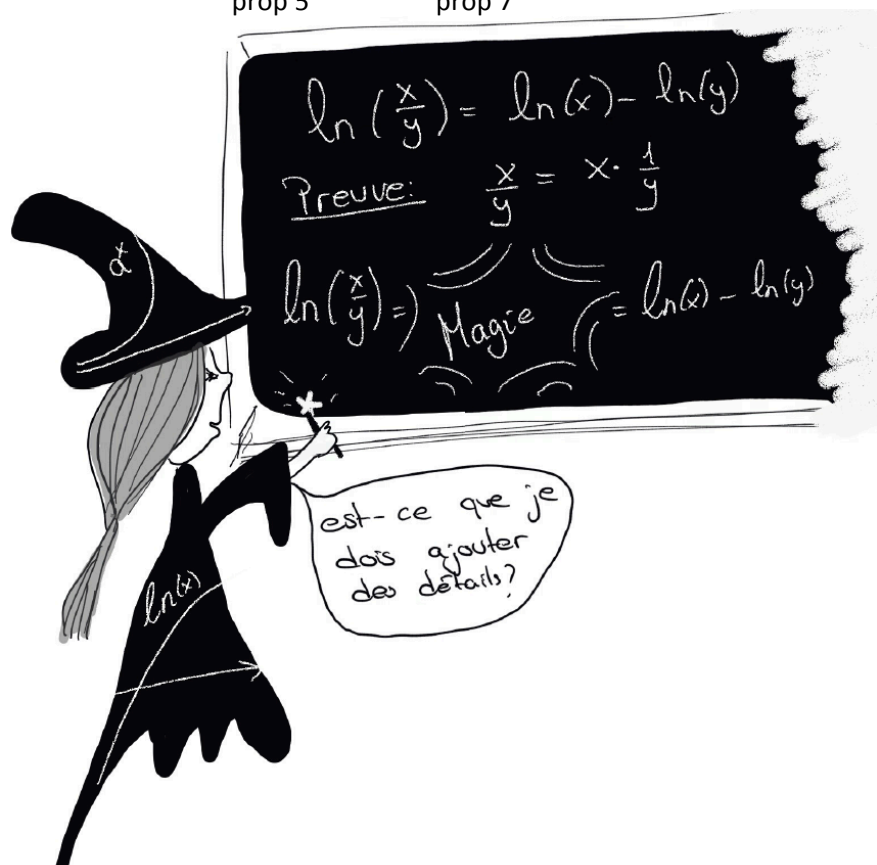 prop 5 prop 7
ln(x/y) = ln(x) - ln(y)
Preuve: x/y = x · 1/y
ln(x/y) = Magie = ln(x) - ln(y)
aˣ
est-ce que je
dois ajouter
des détails?
ln(x)